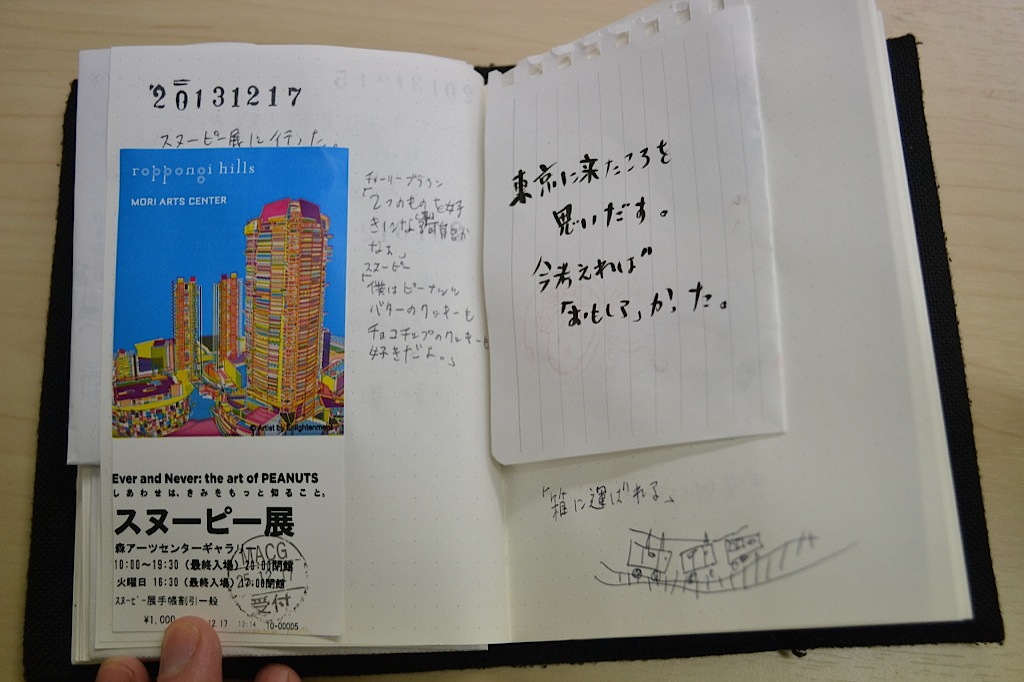 20131217
スヌーピー展に行った。
roppongi hills
MORI ARTS CENTER
© Artist by Enlightenment
Ever and Never: the art of PEANUTS
しあわせは、きみをもっと知ること。
スヌーピー展
森アーツセンターギャラリ
10:00〜19:30（最終入場）20:00閉館
火曜日 16:30（最終入場）17:00閉館
スヌーピー展手帳割引一般
¥1,000
12.17
10-00005
MACG
受付
チャーリーブラウン
「2つのものを好
きになる可能かなぁ」
スヌーピー
「僕はピーナッツ
バターのクッキーも
チョコチップのクッキーも
好きだよ。」
東京に来たころを
思いだす。
今考えれば
「おもしろ」かった。
「箱に運ばれる」